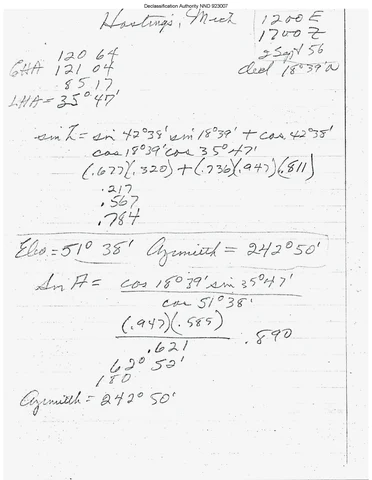 Declassification Authority NND 923007
Hastings, Mich
1200 E
1700 Z
2 Sept 56
decl 18°39'N
120 64
GHA 121 04
85 17
LHA = 35° 47'
sin Z = sin 42°38' sin 18°39' + cos 42°38'
cos 18°39' cos 35° 47'
(.677)(.320) + (.736)(.947)(.811)
.217
.567
.784
Elev. = 51° 38' Azimuth = 242° 50'
Sin A = cos 18°39' sin 35°47'
cos 51° 38'
(.947)(.585)
.621
.890
62° 52'
180
Azimuth = 242° 50'